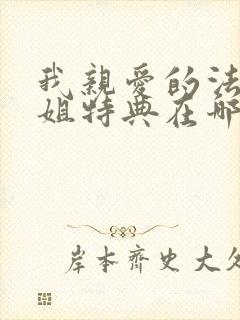 我親愛的法
姐特典在哪
岸本齊史大久